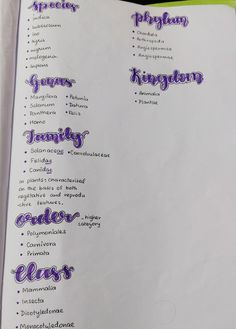 Species
• indica
• tuberosum
• leo
• tigris
• nigrum
• melongena
• sapiens
Genus
• Mangifera
• Solanum
• Panthera
• Homo
• Petunia
• Datura
• Felis
Family
• Solanaceae
• Felidae
• Canidae
• Convolvulaceae
in plants: characterised
on the basis of both
vegetative and reprodu
-ctive features.
Order → higher
category
• Polymoniales
• Carnivora
• Primata
Class
• Mammalia
• Insecta
• Dicotyledonae
• Monocotyledonae
Phylum
• Chordata
• Arthropoda
• Angiospermae
• Angiospermae
Kingdom
• Animalia
• Plantae